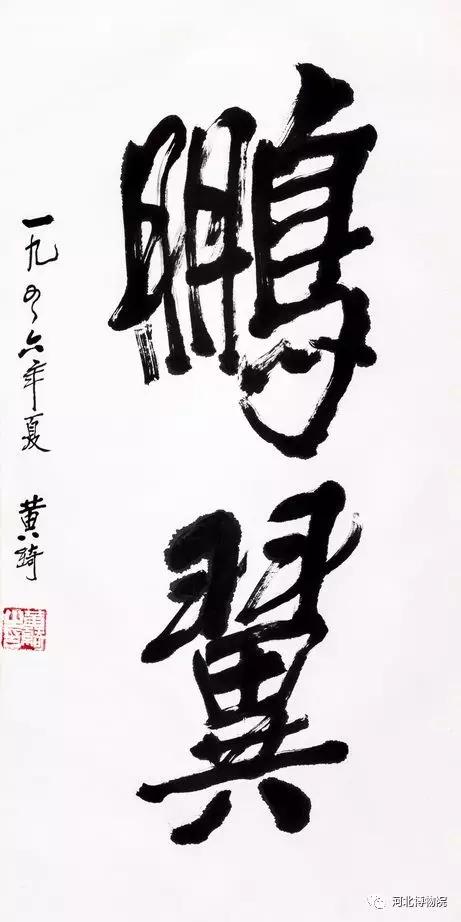 鵬翼
一九九六年夏 黄綺
河北博物院